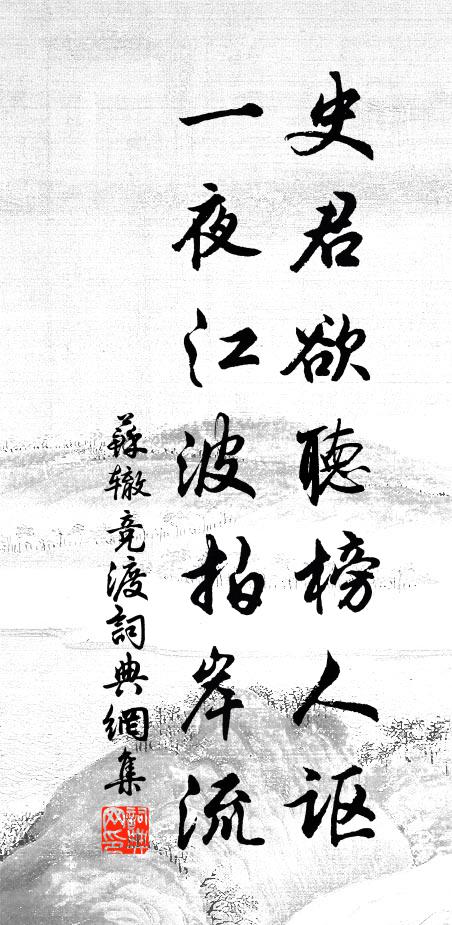 史君欲聽榜人讴
一夜江波拍岸流
蘇辙竟渡詞典網集